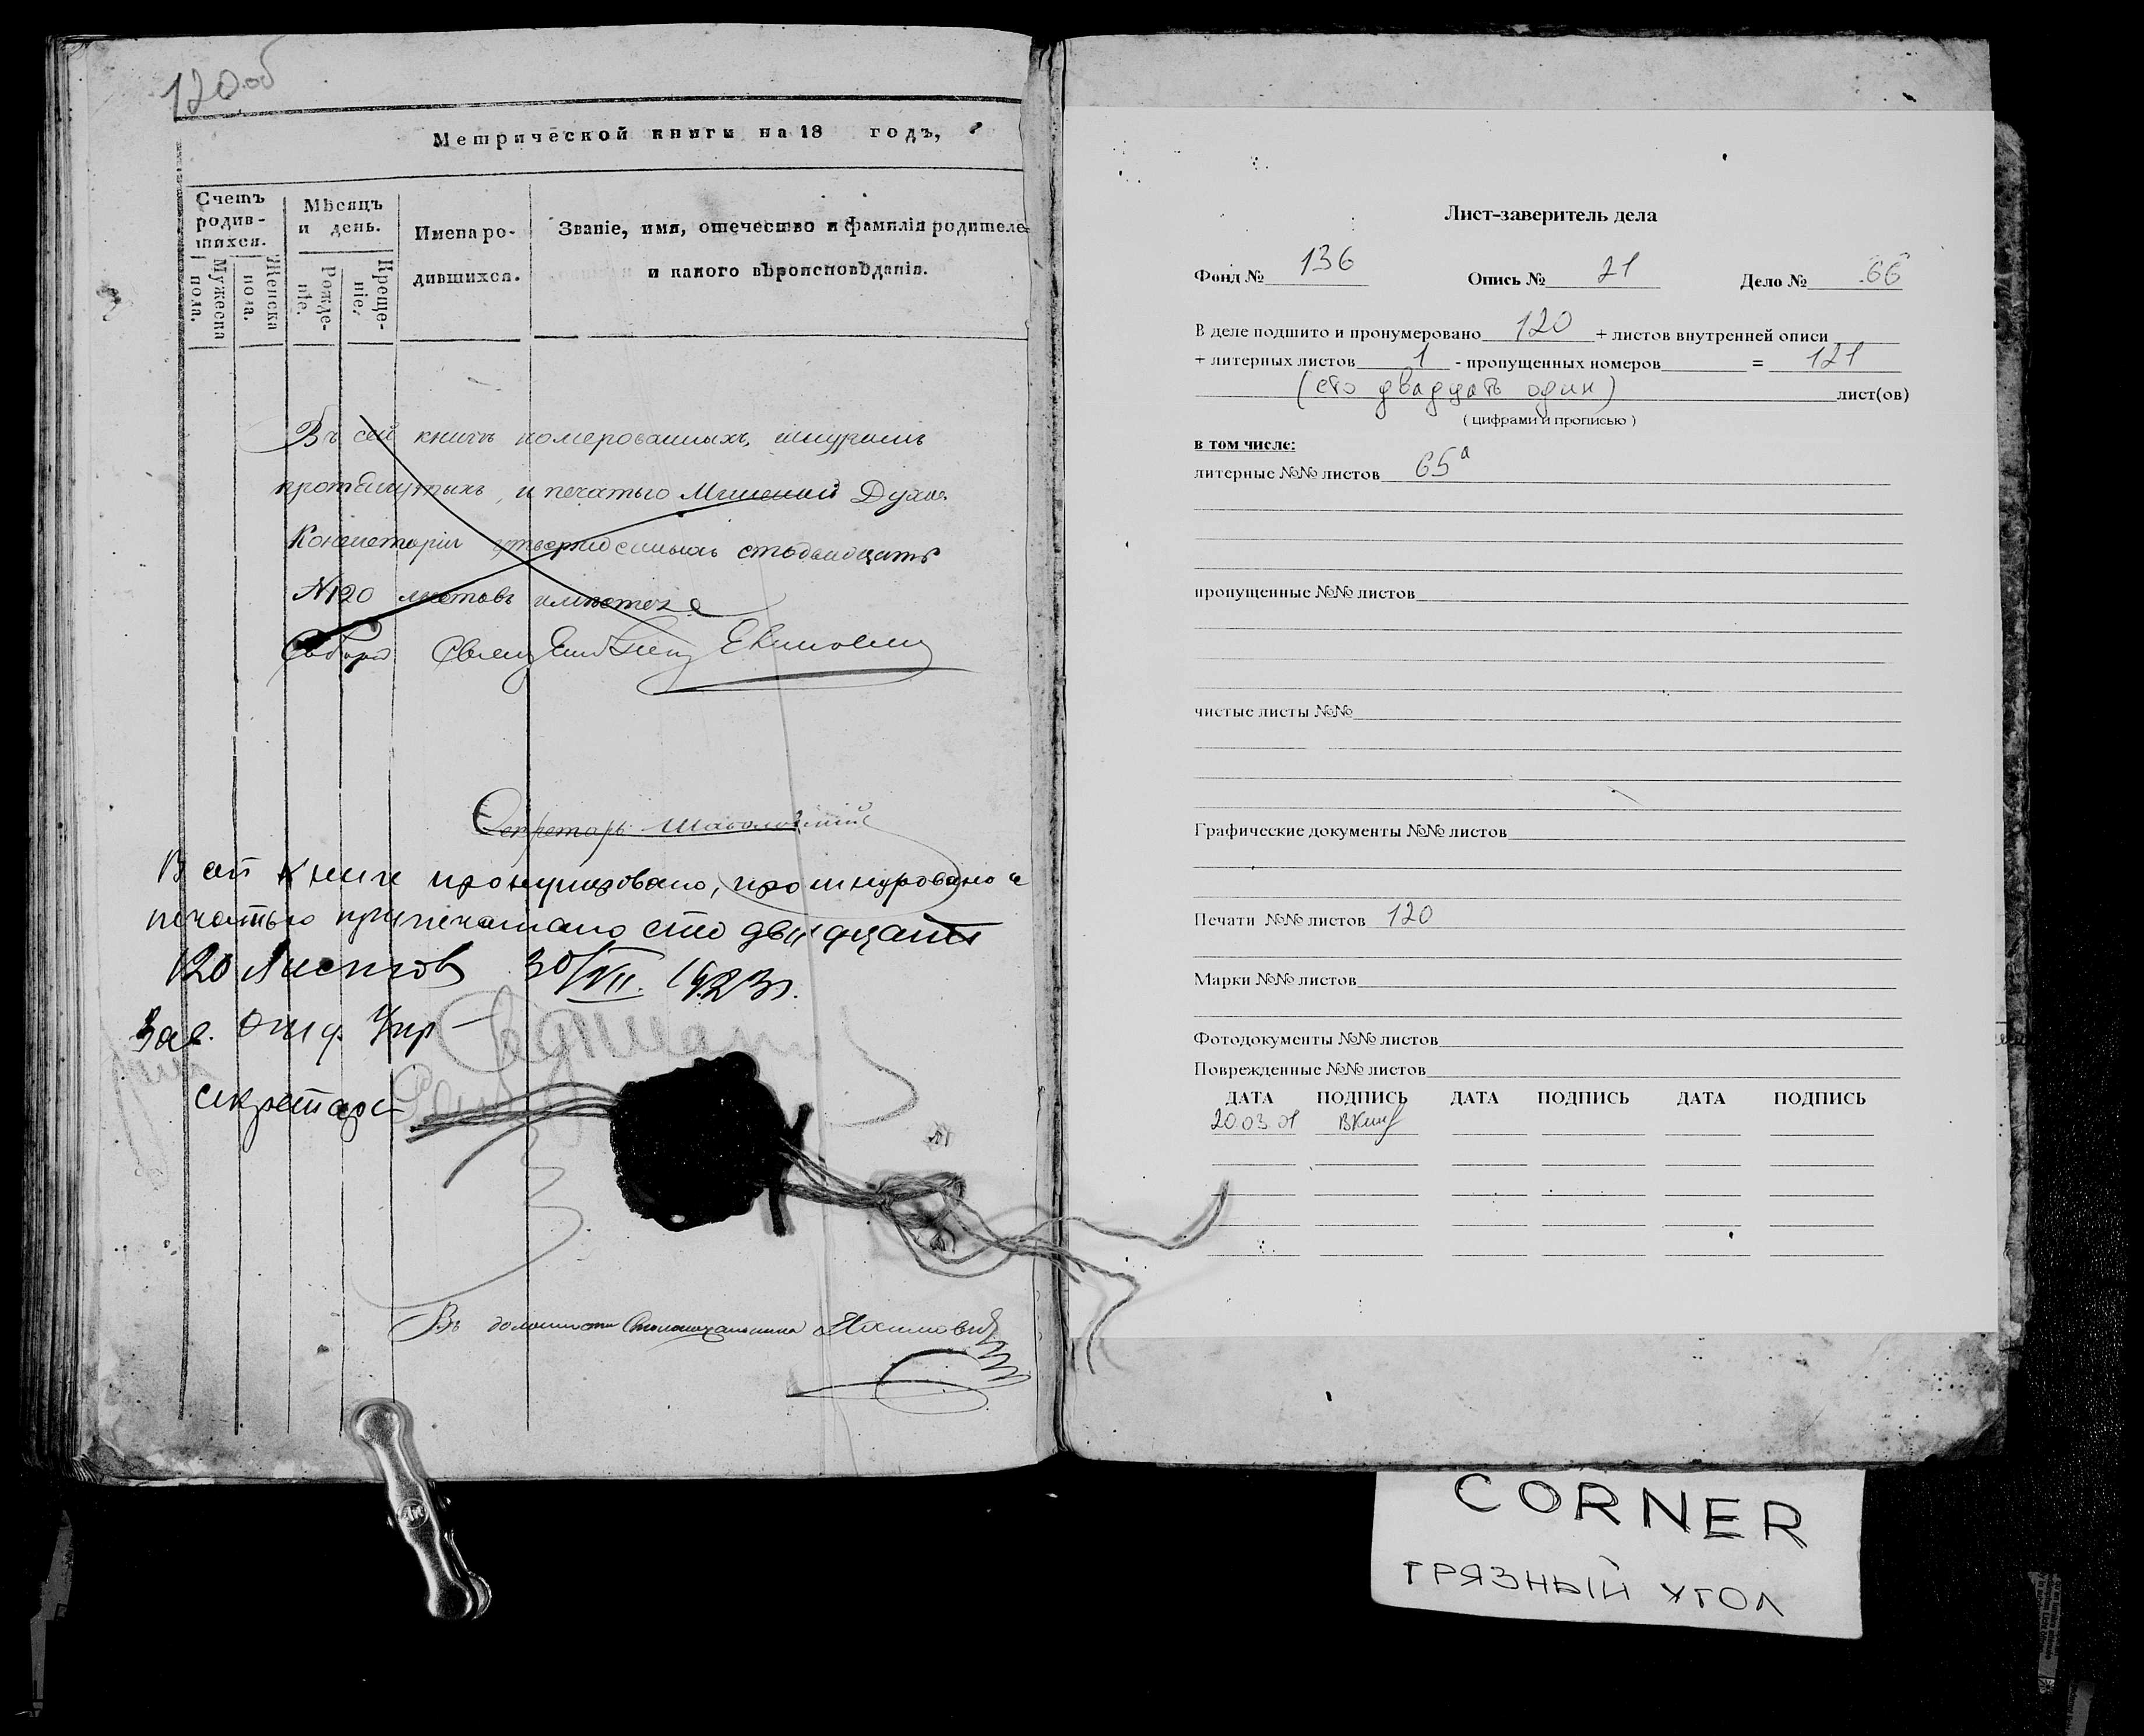 120 об
Метрической книги на 18 годъ,
Счетъ родив-шихся.
Мужеска пола.
Женска пола.
Мѣсяцъ и день.
Рожде-ніе.
Креще-ніе.
Имена ро-дившихся.
Званіе, имя, отечество и фамилія родителе
и какого вѣроисповѣданія.
Въ сей книгѣ номерованныхъ, шнуромъ
протянутыхъ, и печатью Минской Духов.
Консисторіи утвержденныхъ стодвадцать
№120 листовъ имѣется
Секретарь
В сей книге пронумеровано, прошнуровано и
печатью припечатано сто двадцать
120 Листов 30/VII. 1923г.
Зав. Отд. Упр
секретарь
Въ должности Столоначальника
Лист-заверитель дела
Фонд № 136 Опись № 21 Дело № 66
В деле подшито и пронумеровано 120 + листов внутренней описи
+ литерных листов 1 - пропущенных номеров = 121
(сто двадцать один) лист(ов)
( цифрами и прописью )
в том числе:
литерные №№ листов 65а
пропущенные №№ листов
чистые листы №№
Графические документы №№ листов
Печати №№ листов 120
Марки №№ листов
Фотодокументы №№ листов
Поврежденные №№ листов
ДАТА ПОДПИСЬ ДАТА ПОДПИСЬ ДАТА ПОДПИСЬ
20.03.01
CORNER
ГРЯЗНЫЙ УГОЛ